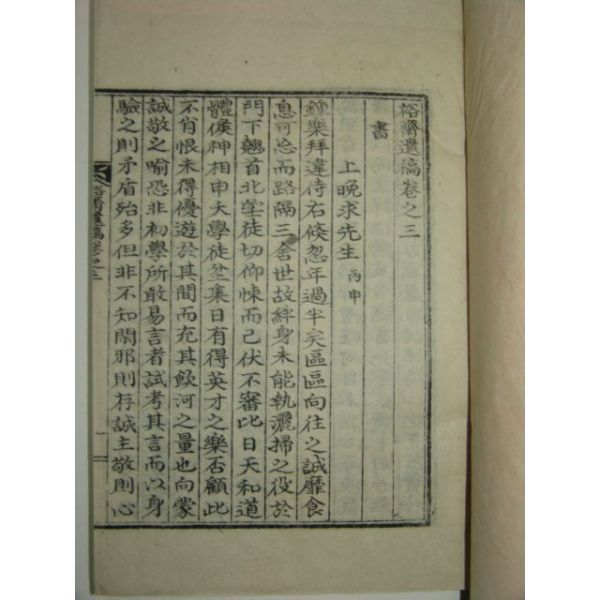 裕齋遺稿卷之三
書
上晚求先生 丙申
鍾樂拜違侍右倐忽年過半矣區區向往之誠靡食
息可忘而路隔三舍世故絆身未能執灑掃之役於
門下翹首北望徒切仰悚而已伏不審此日天和道
體候神相申夭學徒坌集日有得英才之樂否顧此
不肖恨未得優遊於其間而充其飮河之量也向蒙
誠敬之喻恐非初學所敢易言者試考其言而以身
驗之則矛盾殆多但非不知閑邪則存誠主敬則心
裕齋遺稿卷之三
一